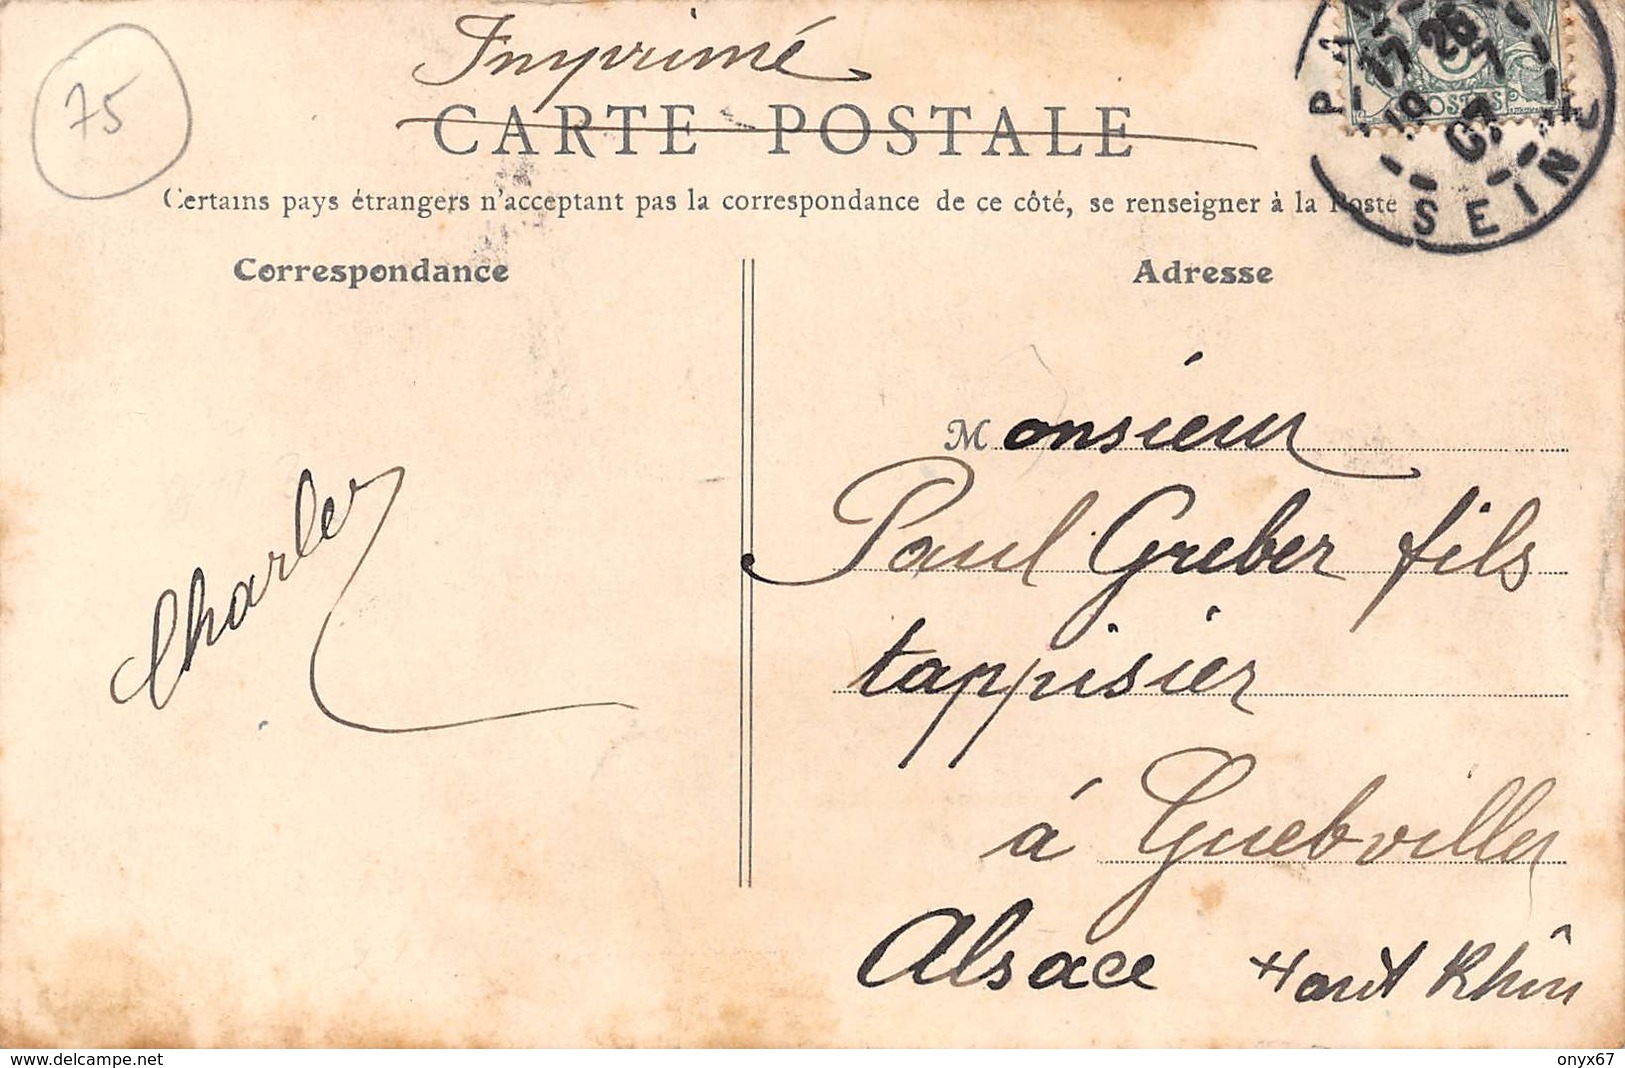 Imprimé
75
CARTE POSTALE
Certains pays étrangers n'acceptant pas la correspondance de ce côté, se renseigner à la Poste
Correspondance
Adresse
POSTES
26
7
07
SEINE
Monsieur
Paul Greber fils
tappisier
à Guebviller
Alsace Haut Rhin
Charles
www.delcampe.net
onyx67